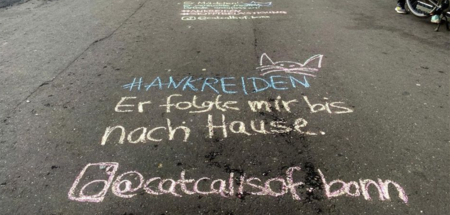 #ANKREIDEN
Er folgte mir bis
nach Hause.
@catcallsof.bonn